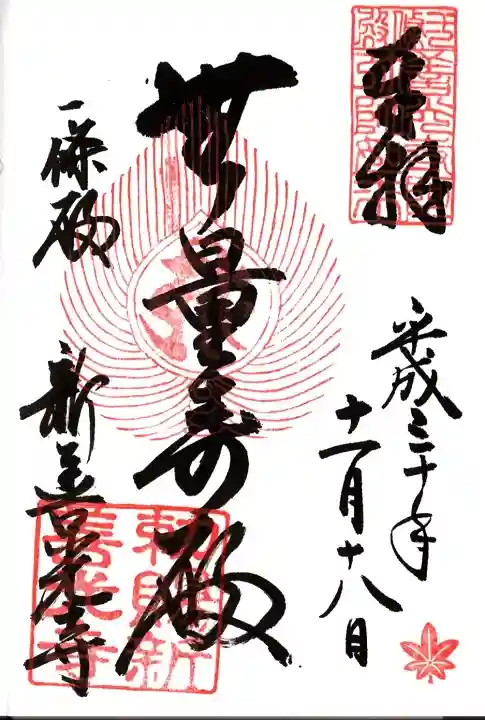 奉拝
平成三十年
十一月十八日
無量寿殿
一條殿
新善光寺
勅賜新
善光寺